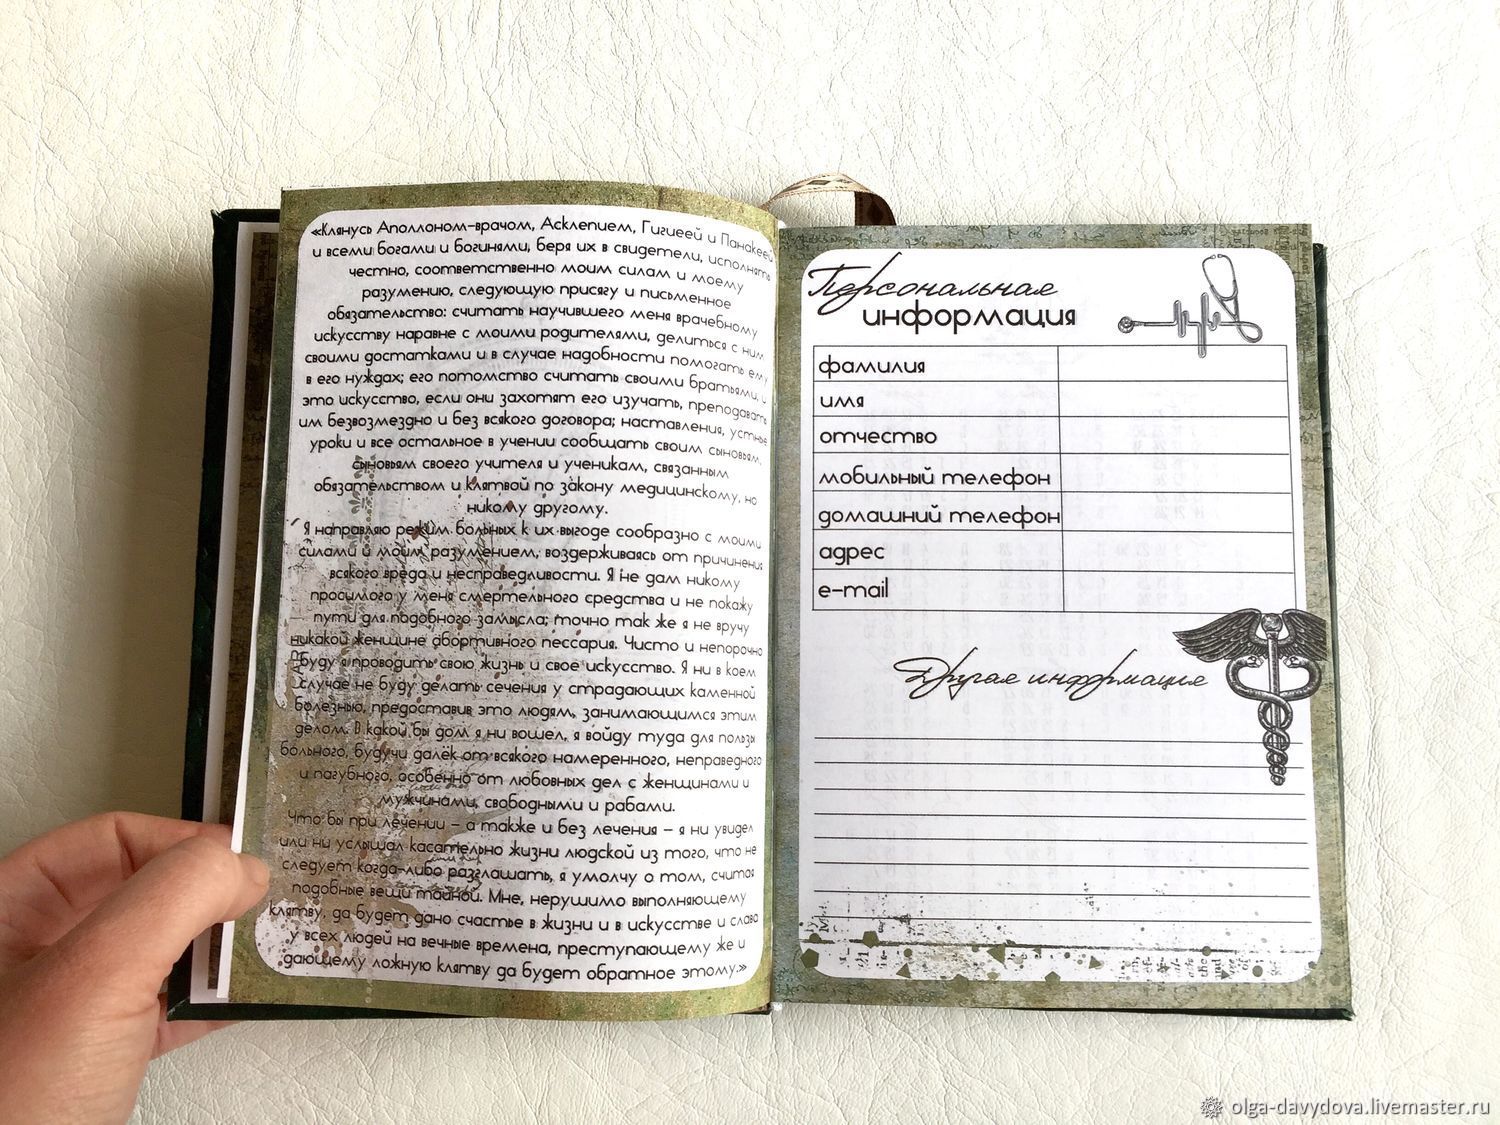 «Клянусь Аполлоном-врачом, Асклепием, Гигиеей и Панакеей
и всеми богами и богинями, беря их в свидетели, исполнять
честно, соответственно моим силам и моему
разумению, следующую присягу и письменное
обязательство: считать научившего меня врачебному
искусству наравне с моими родителями, делиться с ним
своими достатками и в случае надобности помогать ему
в его нуждах; его потомство считать своими братьями, и
это искусство, если они захотят его изучать, преподавать
им безвозмездно и без всякого договора; наставления, устные
уроки и все остальное в учении сообщать своим сыновьям,
сыновьям своего учителя и ученикам, связанным
обязательством и клятвой по закону медицинскому, но
никому другому.
Я направляю режим больных к их выгоде сообразно с моими
силами и моим разумением, воздерживаясь от причинения
всякого вреда и несправедливости. Я не дам никому
просимого у меня смертельного средства и не покажу
пути для подобного замысла; точно так же я не вручу
никакой женщине абортивного пессария. Чисто и непорочно
буду я проводить свою жизнь и свое искусство. Я ни в коем
случае не буду делать сечения у страдающих каменной
болезнью, предоставив это людям, занимающимся этим
делом. В какой бы дом я ни вошел, я войду туда для пользы
больного, будучи далёк от всякого намеренного, неправедного
и пагубного, особенно от любовных дел с женщинами и
мужчинами, свободными и рабами.
Что бы при лечении – а также и без лечения – я ни увидел
или ни услышал касательно жизни людской из того, что не
следует когда-либо разглашать, я умолчу о том, считая
подобные вещи тайной. Мне, нерушимо выполняющему
клятву, да будет дано счастье в жизни и в искусстве и слава
у всех людей на вечные времена, преступающему же и
дающему ложную клятву да будет обратное этому.»
Персональная
информация
фамилия
имя
отчество
мобильный телефон
домашний телефон
адрес
e-mail
Другая информация
olga-davydova.livemaster.ru